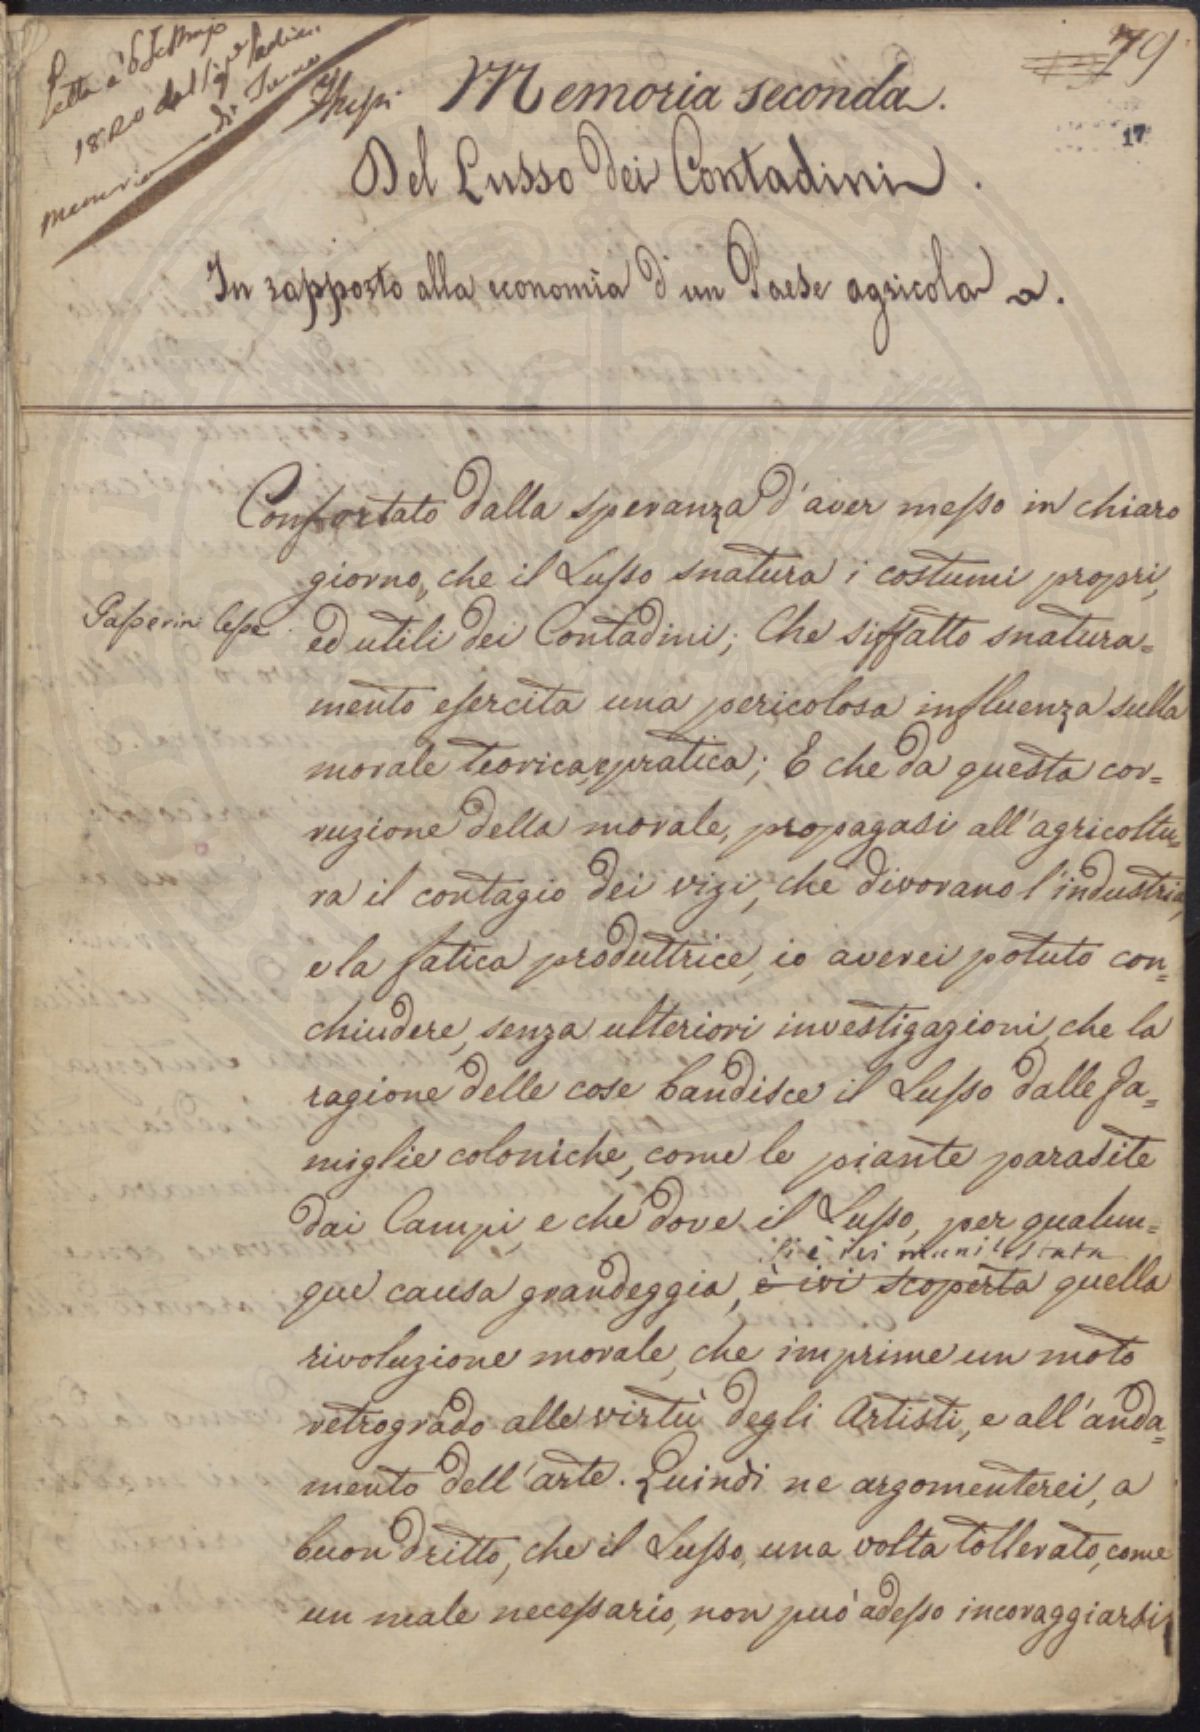 Letta a' 6
1820 dal Sig.e
di Turno
79
17
Memoria seconda.
Del Lusso dei Contadini.
In rapporto alla economia d'un Paese agricola.
Confortato dalla speranza d'aver messo in chiaro
giorno, che il Lusso snatura i costumi propri,
ed utili dei Contadini; Che siffatto snatura=
mento esercita una pericolosa influenza sulla
morale teorica, e pratica; E che da questa cor=
ruzione della morale, propagasi all'agricoltu=
ra il contagio dei vizi, che divorano l'industria,
e la fatica produttrice, io averei potuto con=
chiudere, senza ulteriori investigazioni, che la
ragione delle cose bandisce il Lusso dalle Fa=
miglie coloniche, come le piante parasite
dai Campi, e che dove il Lusso, per qualun=
si è ivi manifestata
que causa grandeggia, è ivi scoperta quella
rivoluzione morale, che imprime un moto
retrogrado alle virtù degli Artisti, e all'anda=
mento dell'arte. Quindi ne argomenterei, a
buon dritto, che il Lusso, una volta tollerato, come
un male necessario, non può adesso incoraggiarsi